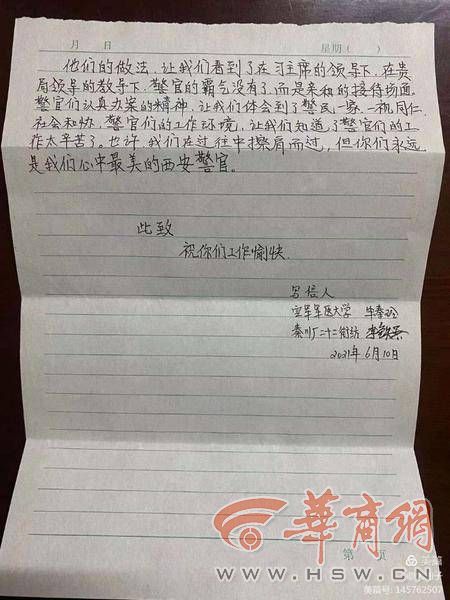 月 日 星期( )
他们的做法,让我们看到了在习主席的领导下,在贵
局领导的教导下,警官的霸气没有了,而是亲和的接待沟通.
警官们认真办案的精神,让我们体会到了警民一家,一视同仁.
社会和协,警官们的工作环境,让我们知道了警官们的工
作太辛苦了。也许,我们在过往中擦肩而过,但你们永远
是我们心中最美的西安警官。
此致
祝你们工作愉快.
写信人
空军军医大学
秦川厂二十二街坊
2021年6月10日
华商网
WWW.HSW.CN
第 页
美篇
美篇号: 145762507